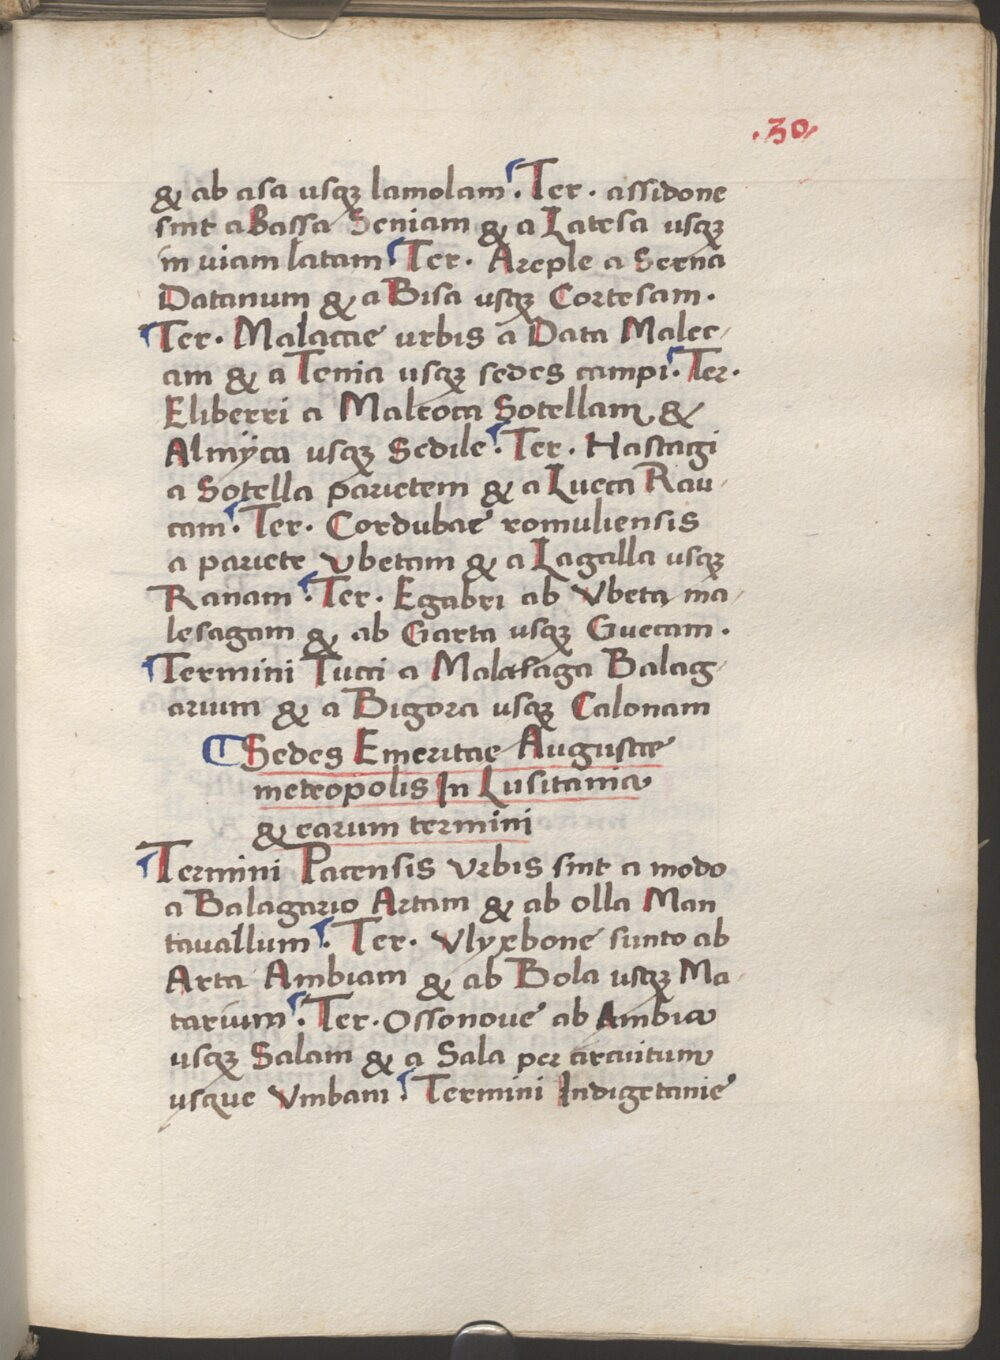 .30.
& ab asa usqꝫ lamolam. Ter. assidone
sint a Bassa Seniam & a Latesa usqꝫ
in uiam latam Ter. Areple a Serna
Datanum & a Bisa usqꝫ Cortesam.
Ter. Malacae urbis a Data Malec-
am & a Tenia usqꝫ sedes campi. Ter.
Eliberri a Maleoca Sotellam &
Almÿca usqꝫ Sedile. Ter. Hastagi
a Sotella parietem & a Lueca Rau-
cam. Ter. Cordubae romuliensis
a pariete Vbetam & a Lagalla usqꝫ
Ranam. Ter. Egabri ab Vbeta ma-
lesagam & ab Garta usqꝫ Guecam.
Termini Tucci a Malasaga Balag-
arium & a Bigora usqꝫ Calonam
Sedes Emeritae Augustae
metropolis In Lusitania
& earum termini
Termini Pacensis Vrbis sint a modo
a Balagario Artam & ab olla Man
tauallum. Ter. Vlyxbone sunto ab
Arta Ambiam & ab Bola usqꝫ Ma-
tarium. Ter. Ossonoue ab Ambia
usqꝫ Salam & a Sala per circuitum
usque Vmbam. Termini Indigetanie